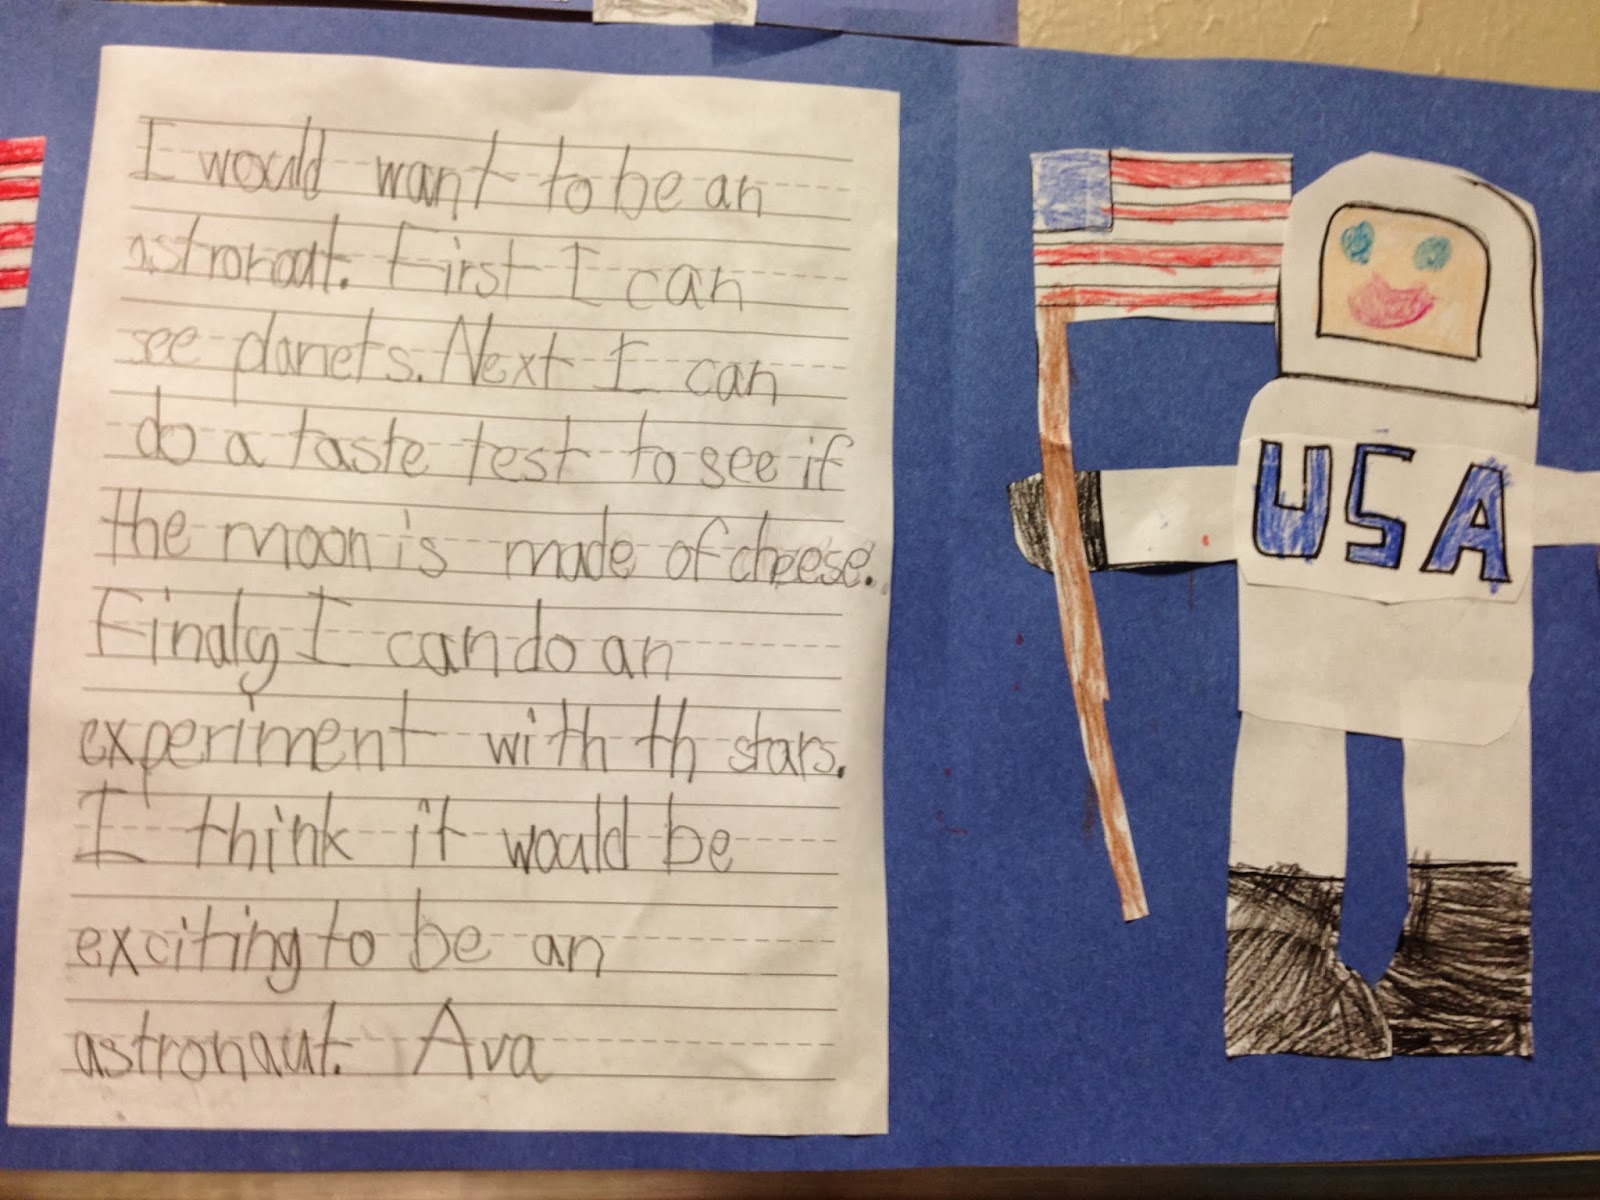 I would want to be an
astronaut. First I can
see planets. Next I can
do a taste test to see if
the moon is made of cheese.
Finaly I can do an
experiment with th stars.
I think it would be
exciting to be an
astronaut. Ava
USA